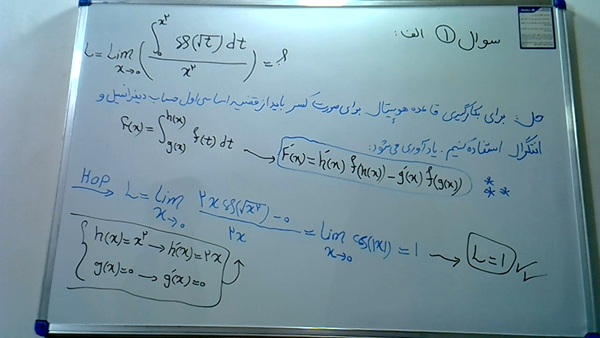 سوال ① الف:
L = Lim x→0 ( ∫₀^{x²} cos(√t) dt / x² ) = ?
حل: برای بکارگیری قاعده هوپیتال برای صورت کسر باید از قضیه اساسی اول حساب دیفرانسیل و
انتگرال استفاده کنیم. یادآوری می‌شود:
F(x) = ∫_{g(x)}^{h(x)} f(t) dt → F'(x) = h'(x) f(h(x)) - g'(x) f(g(x)) **
HOP → L = Lim x→0 (۲x cos(√x²) - ۰ / ۲x) = Lim x→0 cos(|x|) = 1 → L = 1
h(x) = x² → h'(x) = ۲x
g(x) = 0 → g'(x) = 0